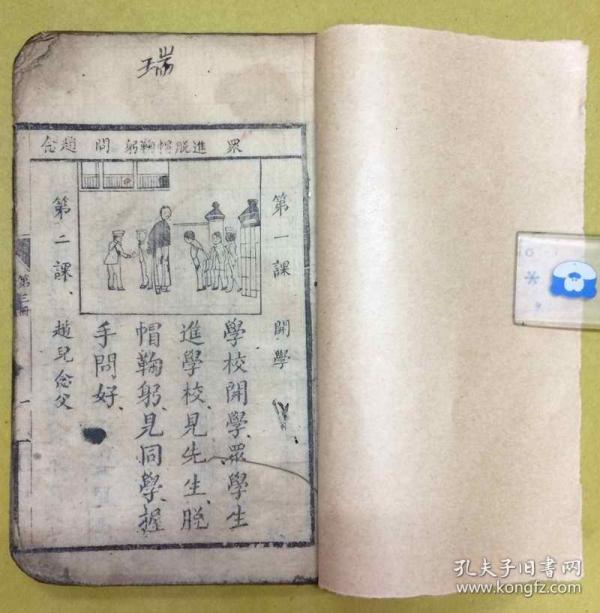 瑞
眾 進脫帽鞠躬 問 趙念
第一課 開學
學校開學、眾學生
進學校、見先生、脫
帽鞠躬、見同學、握
手問好、
第二課、
趙兒念父
第三冊
一
孔夫子旧書网
www.kongfz.com